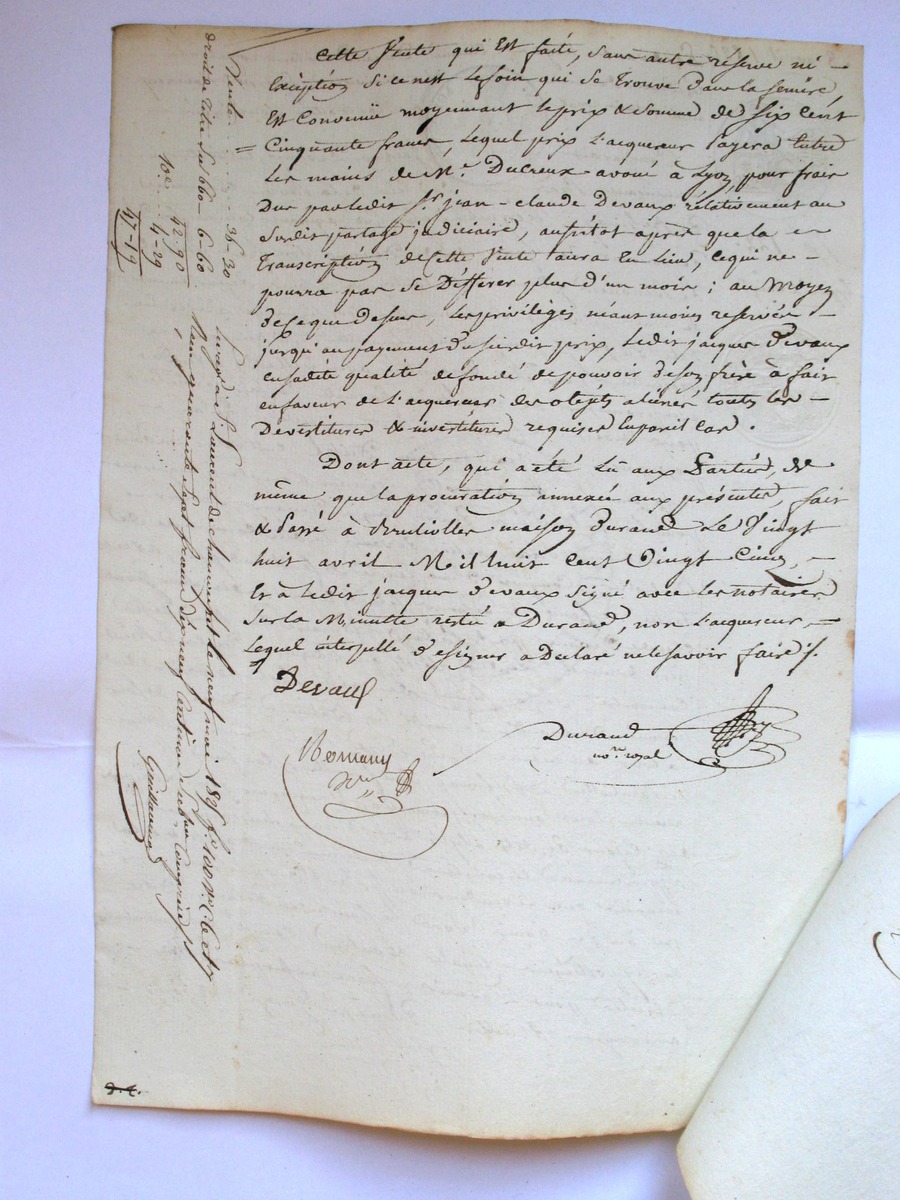 Cette Vente qui Est faite, sans autre réserve ni —
Exception si ce nest le foin qui se trouve dans la feniere,
Est Convenue moyennant le prix & somme de six Cent
Cinquante francs, lequel prix l'acquereur payera Entre
les mains de Me. Ducreux avoué à Lyon pour frais
Dus par ledit Sr. jean-claude Devaux rélativement au
Susdit partage judiciaire, aussitot après que la =
Transcription de Cette Vente taura Eu lieu, ce qui ne —
pourra pas se Différer plus d'un mois ; au Moyen
de Ce que Dessus, les privilèges néantmoins reservés —
jusqu'au payement du susdit prix, ledit jacques Devaux
en sadite qualité de fondé de pouvoir de son frère à fait
en faveur de l'acquereur des objets alienés toutes les —
Devestitures & investitures requises En pareil Cas .
Dont acte, qui a été Lû aux Parties, de
même que la procuration annexée aux présentes, fait
& Passé à Brulioles maison Durand Le Vingt
huit avril Mil huit Cent Vingt Cinq, —
Et à ledit jacques Devaux Signé avec les notaires
sur la Minutte restée a Durand, non l'acquereur, —
Lequel interpellé de signer a Declaré ne le savoir faire ./.
Devaux
Durand
nore. royal
Romany
nre
Vente . . . . 36-20
droit de Titre sur 660 – 6-60
42-90
10e . . . . 4-29
47-19
Enregé. à St. Laurent de chamousset le neuf mai 1825 fo. 100 Vo. C. 6 et 7
Reçu quarante sept francs dix neuf Centimes Subon Compris
Guillaumes